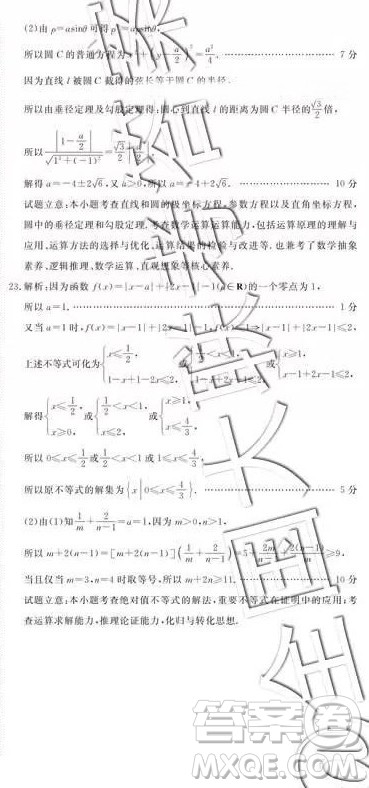 (2)由 ρ=asinθ 可得 ρ²=aρsinθ,
所以圆 C 的普通方程为 x²+(y-a/2)²=a²/4. 7 分
因为直线 l 被圆 C 截得的弦长等于圆 C 的半径,
所以由垂径定理及勾股定理得:圆心到直线 l 的距离为圆 C 半径的 √3/2 倍,
所以 |1-a/2|/√(1²+(-1)²)=√3/2·
解得 a=-4±2√6,又 a>0,所以 a=-4+2√6. 10 分
试题立意:本小题考查直线和圆的极坐标方程,参数方程以及直角坐标方程,
圆中的垂径定理和勾股定理.考查数学运算运算能力,包括运算原理的理解与
应用、运算方法的选择与优化、运算结果的检验与改进等,也兼考了数学抽象
素养、逻辑推理、数学运算、直观想象等核心素养.
23.解析:因为函数 f(x)=|x-a|+|2x-1|(∈R)的一个零点为 1,
所以 a=1. 1 分
又当 a=1 时,f(x)=|x-1|+|2x-1|,f(x)≤2⇒|x-1|+|2x-1|≤2,
上述不等式可化为{x≤1/2, 1-x+1-2x≤2, 或{1/2<x<1, ≤2, 或{x≥1, x-1+2x-1≤2.
解得{x≤1/2, x≥0, 或{1/2<x<1, x≤2, 或{x≥1, x≤4/3,
所以 0≤x≤1/2 或 1/2<x<1 或 1≤x≤4/3,
所以原不等式的解集为{x|0≤x≤4/3}. 5 分
(2)由(1)知 1/m+2/(n-1)=a=1,因为 m>0,n>1,
所以 m+2(n-1)=[m+2(n-1)](1/m+2/(n-1))=5+2m/(n-1)+2(n-1)/m≥9,
当且仅当 m=3,n=4 时取等号,所以 m+2n≥11. 10 分
试题立意:本小题考查绝对值不等式的解法,重要不等式在证明中的应用;考
查运算求解能力,推理论证能力,化归与转化思想.
答案圈